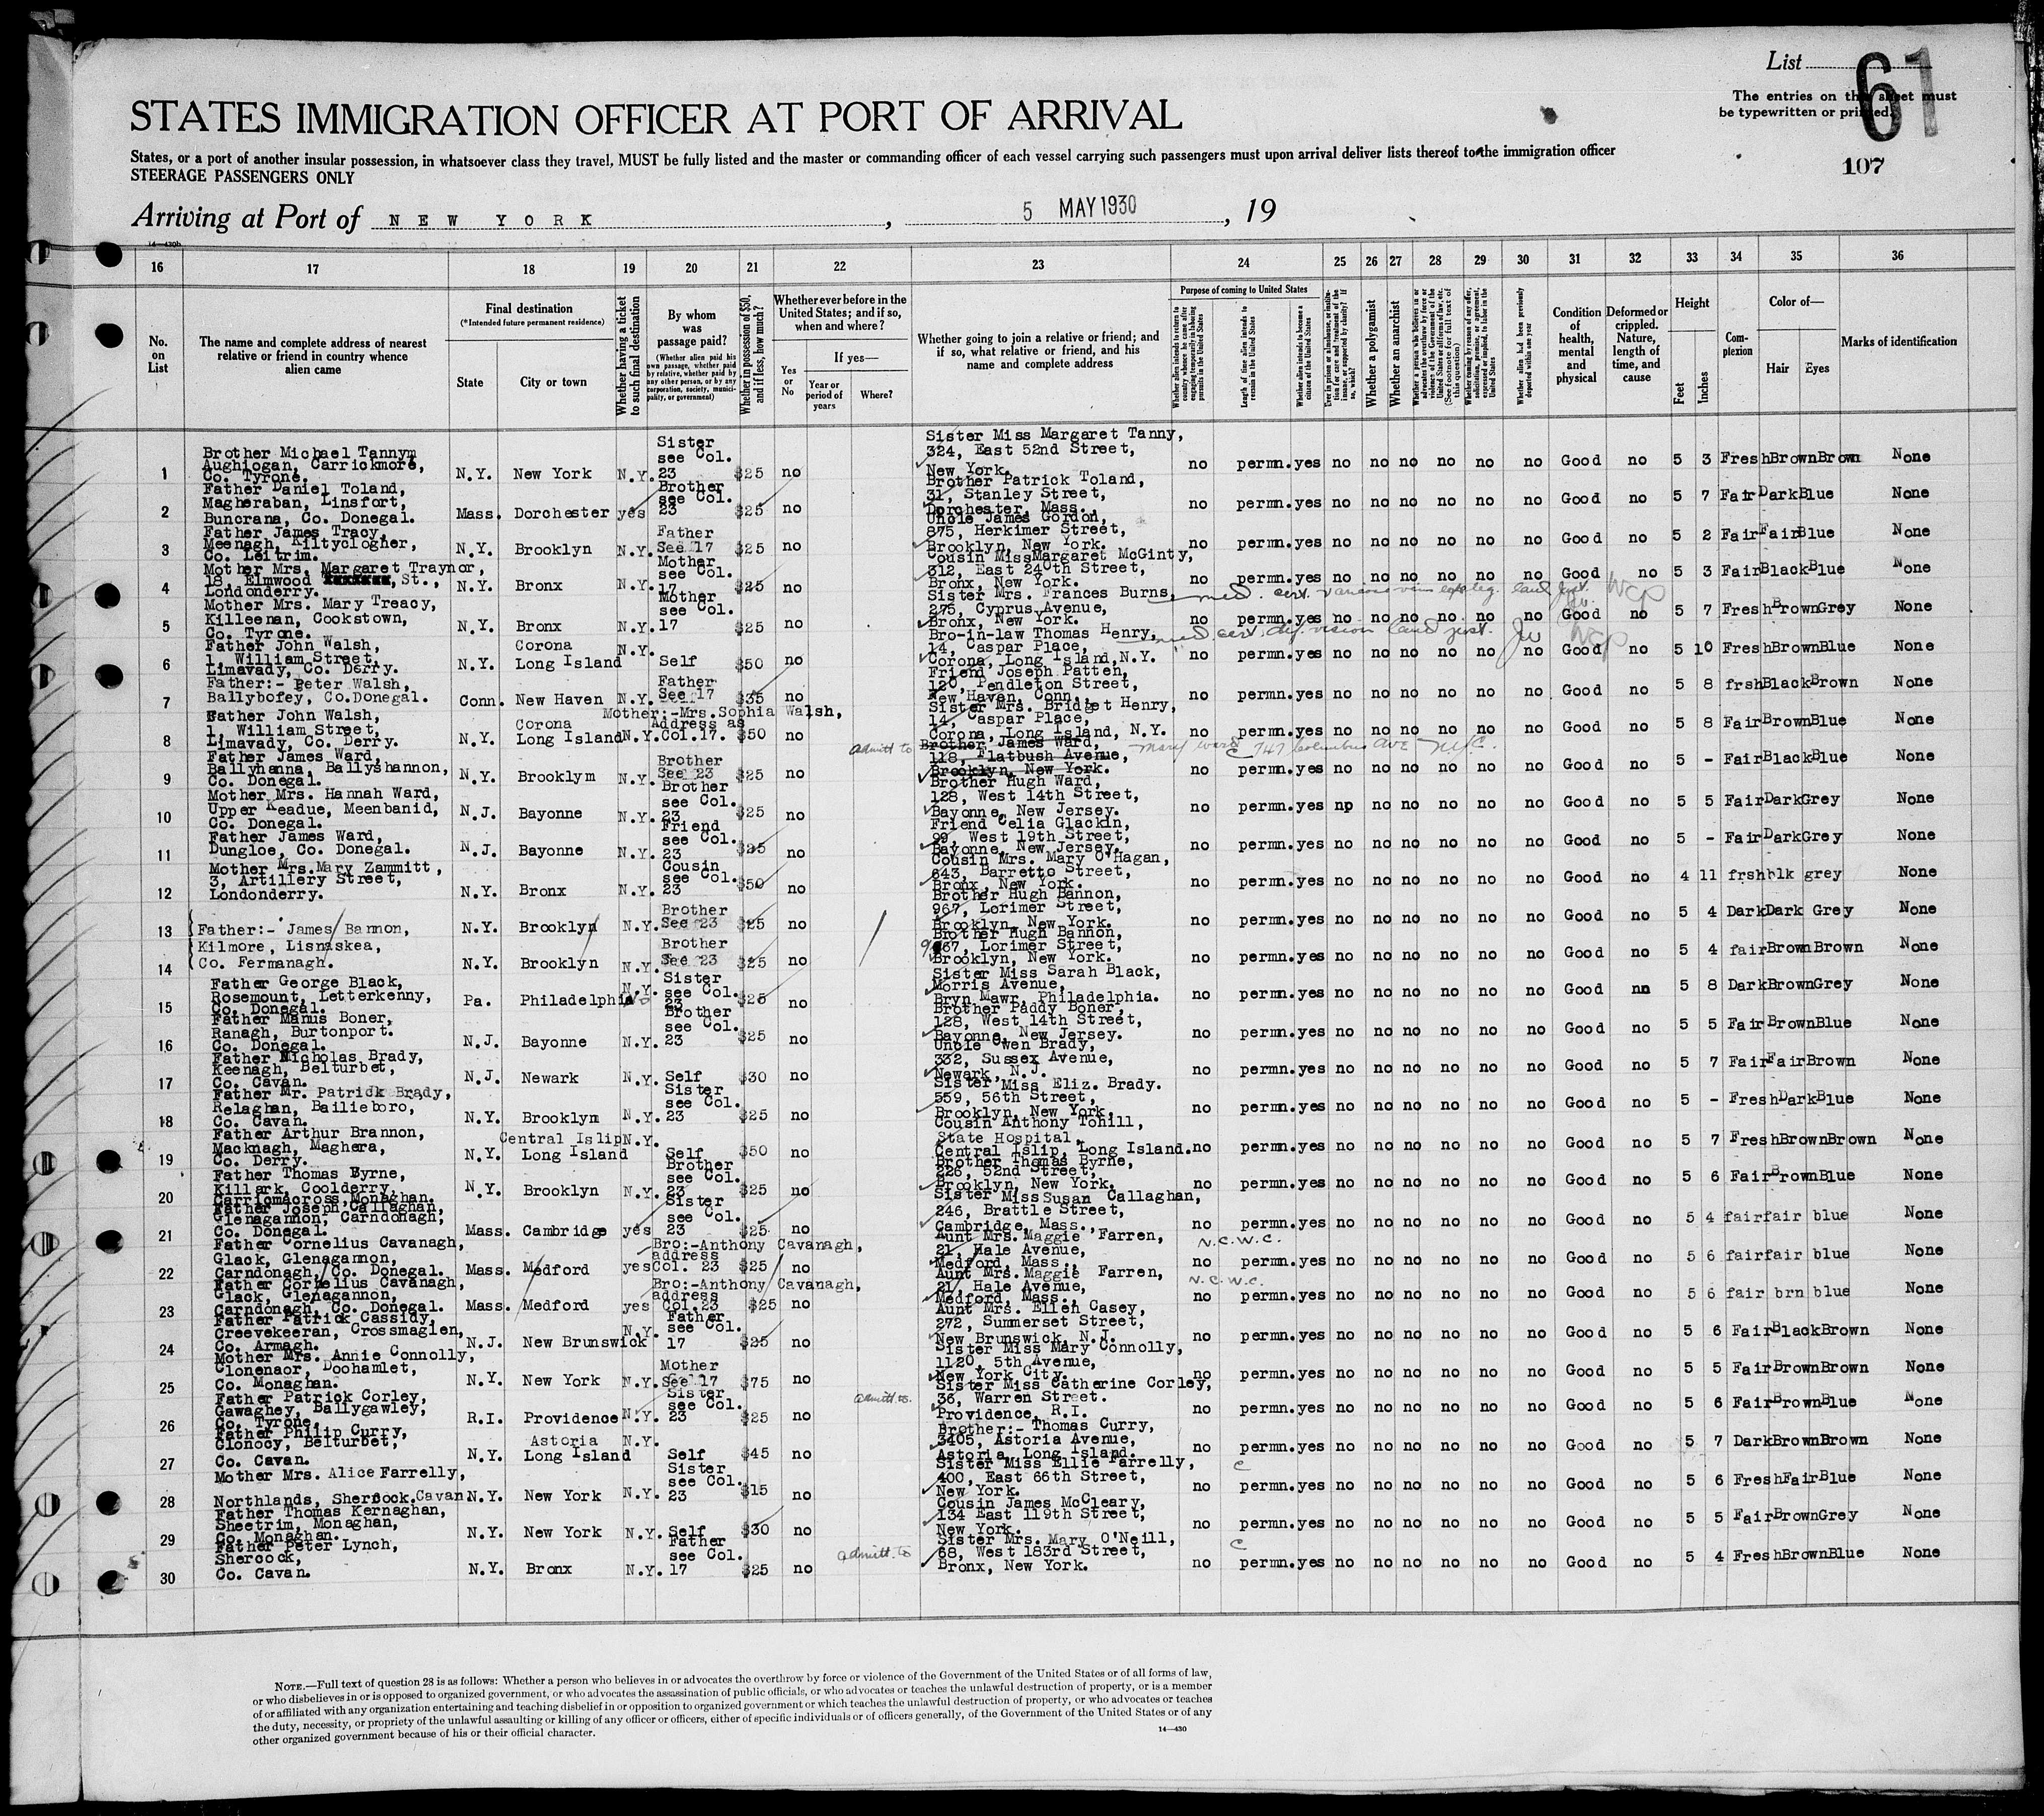 List 61
The entries on this sheet must
be typewritten or printed.
107
STATES IMMIGRATION OFFICER AT PORT OF ARRIVAL
States, or a port of another insular possession, in whatsoever class they travel, MUST be fully listed and the master or commanding officer of each vessel carrying such passengers must upon arrival deliver lists thereof to the immigration officer
STEERAGE PASSENGERS ONLY
Arriving at Port of NEW YORK, 5 MAY 1930, 19
14—430b
16 17 18 19 20 21 22 23 24 25 26 27 28 29 30 31 32 33 34 35 36
No. on List
The name and complete address of nearest relative or friend in country whence alien came
Final destination
(*Intended future permanent residence)
State
City or town
Whether having a ticket to such final destination
By whom was passage paid?
(Whether alien paid his own passage, whether paid by relative, whether paid by any other person, or by any corporation, society, municipality, or government)
Whether in possession of $50, and if less, how much?
Whether ever before in the United States; and if so, when and where?
Yes or No
If yes—
Year or period of years
Where?
Whether going to join a relative or friend; and if so, what relative or friend, and his name and complete address
Purpose of coming to United States
Whether alien intends to return to country whence he came after engaging temporarily in laboring pursuits in the United States
Length of time alien intends to remain in the United States
Whether alien intends to become a citizen of the United States
Ever in prison or almshouse, or institution for care and treatment of the insane, or supported by charity? If so, which?
Whether a polygamist
Whether an anarchist
Whether a person who believes in or advocates the overthrow by force or violence of the Government of the United States or all forms of law, etc. (See footnote for full text of this question)
Whether coming by reason of any offer, solicitation, promise, or agreement, expressed or implied, to labor in the United States
Whether alien had been previously deported within one year
Condition of health, mental and physical
Deformed or crippled. Nature, length of time, and cause
Height
Feet
Inches
Complexion
Color of—
Hair
Eyes
Marks of identification
1 Brother Michael Tannym Aughiogan, Carrickmore, Co. Tyrone. N.Y. New York N.Y. Sister see Col. 23 $25 no Sister Miss Margaret Tanny, 324, East 52nd Street, New York. no permn. yes no no no no no no Good no 5 3 Fresh Brown Brown None
2 Father Daniel Toland, Magheraban, Linsfort, Buncrana, Co. Donegal. Mass. Dorchester yes Brother see Col. 23 $25 no Brother Patrick Toland, 31, Stanley Street, Dorchester, Mass. no permn. yes no no no no no no Good no 5 7 Fair Dark Blue None
3 Father James Tracy, Meenagh, Kiltyclogher, Co. Leitrim. N.Y. Brooklyn N.Y. Father See 17 $25 no Uncle James Gordon, 875, Herkimer Street, Brooklyn, New York. no permn. yes no no no no no no Good no 5 2 Fair Fair Blue None
4 Mother Mrs. Margaret Traynor, 18, Elmwood St., Londonderry. N.Y. Bronx N.Y. Mother see Col. 17 $25 no Cousin Miss Margaret McGinty, 312, East 240th Street, Bronx, New York. no permn. yes no no no no no no Good no 5 3 Fair Black Blue None
5 Mother Mrs. Mary Treacy, Killeenan, Cookstown, Co. Tyrone. N.Y. Bronx N.Y. Mother see Col. 17 $25 no Sister Mrs. Frances Burns, 275, Cyprus Avenue, Bronx, New York. med. cert. no permn. yes no no no no no no Good no 5 7 Fresh Brown Grey None
6 Father John Walsh, 1, William Street, Limavady, Co. Derry. N.Y. Corona Long Island N.Y. Self $50 no Bro-in-law Thomas Henry, 14, Caspar Place, Corona, Long Island, N.Y. med. cert. def. vision no permn. yes no no no no no no Good no 5 10 Fresh Brown Blue None
7 Father:- Peter Walsh, Ballybofey, Co.Donegal. Conn. New Haven N.Y. Father See 17 $35 no Friend Joseph Patten, 120, Pendleton Street, New Haven, Conn. no permn. yes no no no no no no Good no 5 8 frsh Black Brown None
8 Father John Walsh, 1, William Street, Limavady, Co. Derry. N.Y. Corona Long Island N.Y. Mother:-Mrs.Sophia Walsh, Address as Col.17. $50 no Sister Mrs. Bridget Henry, 14, Caspar Place, Corona, Long Island, N.Y. no permn. yes no no no no no no Good no 5 8 Fair Brown Blue None
9 Father James Ward, Ballyhanna, Ballyshannon, Co. Donegal. N.Y. Brooklym N.Y. Brother See 23 $25 no admitt to Brother James Ward, 118, Flatbush Avenue, Brooklyn, New York. Mary Ward 747 Columbus Ave NYC. no permn. yes no no no no no no Good no 5 - Fair Black Blue None
10 Mother Mrs. Hannah Ward, Upper Keadue, Meenbanid, Co. Donegal. N.J. Bayonne N.Y. Brother see Col. 23 $25 no Brother Hugh Ward, 128, West 14th Street, Bayonne, New Jersey. no permn. yes np no no no no no Good no 5 5 Fair Dark Grey None
11 Father James Ward, Dungloe, Co. Donegal. N.J. Bayonne N.Y. Friend see Col. 23 $25 no Friend Celia Glackin, 99, West 19th Street, Bayonne, New Jersey. no permn. yes no no no no no no Good no 5 - Fair Dark Grey None
12 Mother Mrs.Mary Zammitt, 3, Artillery Street, Londonderry. N.Y. Bronx N.Y. Cousin see Col. 23 $50 no Cousin Mrs. Mary O'Hagan, 643, Barretto Street, Bronx, New York. no permn. yes no no no no no no Good no 4 11 frsh blk grey None
13 Father:- James Bannon, Kilmore, Lisnaskea, Co. Fermanagh. N.Y. Brooklyn N.Y. Brother See 23 $25 no Brother Hugh Bannon, 967, Lorimer Street, Brooklyn, New York. no permn. yes no no no no no no Good no 5 4 Dark Dark Grey None
14 N.Y. Brooklyn N.Y. Brother See 23 $25 no Brother Hugh Bannon, 967, Lorimer Street, Brooklyn, New York. no permn. yes no no no no no no Good no 5 4 fair Brown Brown None
15 Father George Black, Rosemount, Letterkenny, Co. Donegal. Pa. Philadelphia N.Y. Sister see Col. 23 $25 no Sister Miss Sarah Black, Morris Avenue, Bryn Mawr, Philadelphia. no permn. yes no no no no no no Good no 5 8 Dark Brown Grey None
16 Father Manus Boner, Ranagh, Burtonport. Co. Donegal. N.J. Bayonne N.Y. Brother see Col. 23 $25 no Brother Paddy Boner, 128, West 14th Street, Bayonne, New Jersey. no permn. yes no no no no no no Good no 5 5 Fair Brown Blue None
17 Father Nicholas Brady, Keenagh, Belturbet, Co. Cavan. N.J. Newark N.Y. Self $30 no Uncle Owen Brady, 332, Sussex Avenue, Newark, N.J. no permn. yes no no no no no no Good no 5 7 Fair Fair Brown None
18 Father Mr. Patrick Brady, Relaghan, Bailieboro, Co. Cavan. N.Y. Brooklyn N.Y. Sister see Col. 23 $25 no Sister Miss Eliz. Brady. 559, 56th Street, Brooklyn, New York, no permn. yes no no no no no no Good no 5 - Fresh Dark Blue None
19 Father Arthur Brannon, Macknagh, Maghera, Co. Derry. N.Y. Central Islip Long Island N.Y. Self $50 no Cousin Anthony Tohill, State Hospital, Central Islip, Long Island. no permn. yes no no no no no no Good no 5 7 Fresh Brown Brown None
20 Father Thomas Byrne, Killark, Coolderry, Carricmacross, Monaghan. N.Y. Brooklyn N.Y. Brother see Col. 23 $25 no Brother Thomas Byrne, 226, 52nd Street, Brooklyn, New York. no permn. yes no no no no no no Good no 5 6 Fair Brown Blue None
21 Father Joseph Callaghan, Glenagannon, Carndonagh, Co. Donegal. Mass. Cambridge yes Sister see Col. 23 $25 no Sister Miss Susan Callaghan, 246, Brattle Street, Cambridge, Mass., no permn. yes no no no no no no Good no 5 4 fair fair blue None
22 Father Cornelius Cavanagh, Glack, Glenagannon, Carndonagh, Co. Donegal. Mass. Medford yes Bro:-Anthony Cavanagh, address Col. 23 $25 no Aunt Mrs. Maggie Farren, 21, Hale Avenue, Medford, Mass., N.C.W.C. no permn. yes no no no no no no Good no 5 6 fair fair blue None
23 Father Cornelius Cavanagh, Glack, Glenagannon, Carndonagh, Co. Donegal. Mass. Medford yes Bro:-Anthony Cavanagh, address Col.23 $25 no Aunt Mrs. Maggie Farren, 21, Hale Avenue, Medford, Mass., N.C.W.C. no permn. yes no no no no no no Good no 5 6 fair brn blue None
24 Father Patrick Cassidy, Creevekeeran, Crossmaglen, Co. Armagh. N.J. New Brunswick N.Y. Father see Col. 17 $25 no Aunt Mrs. Ellen Casey, 272, Summerset Street, New Brunswick, N.J. no permn. yes no no no no no no Good no 5 6 Fair Black Brown None
25 Mother Mrs. Annie Connolly, Clonenaor, Doohamlet, Co. Monaghan. N.Y. New York N.Y. Mother See 17 $75 no Sister Miss Mary Connolly, 1120, 5th Avenue, New York City. no permn. yes no no no no no no Good no 5 5 Fair Brown Brown None
26 Father Patrick Corley, Gawaghey, Ballygawley, Co. Tyrone. R.I. Providence N.Y. Sister see Col. 23 $25 no admitt to. Sister Miss Catherine Corley, 36, Warren Street. Providence, R.I. no permn. yes no no no no no no Good no 5 6 Fair Brown Blue None
27 Father Philip Curry, Clonocy, Belturbet, Co. Cavan. N.Y. Astoria Long Island N.Y. Self $45 no Brother:- Thomas Curry, 3405, Astoria Avenue, Astoria, Long Island. no permn. yes no no no no no no Good no 5 7 Dark Brown Brown None
28 Mother Mrs. Alice Farrelly, Northlands, Shercock.Cavan N.Y. New York N.Y. Sister see Col. 23 $15 no Sister Miss Ellie Farrelly, 400, East 66th Street, New York. c no permn. yes no no no no no no Good no 5 6 Fresh Fair Blue None
29 Father Thomas Kernaghan, Sheetrim, Monaghan, Co. Monaghan. N.Y. New York N.Y. Self $30 no Cousin James McCleary, 134 East 119th Street, New York. no permn. yes no no no no no no Good no 5 5 Fair Brown Grey None
30 Father Peter Lynch, Shercock, Co. Cavan. N.Y. Bronx N.Y. Father see Col. 17 $25 no admitt. to Sister Mrs. Mary O'Neill, 68, West 183rd Street, Bronx, New York. c no permn. yes no no no no no no Good no 5 4 Fresh Brown Blue None
NOTE.—Full text of question 28 is as follows: Whether a person who believes in or advocates the overthrow by force or violence of the Government of the United States or of all forms of law,
or who disbelieves in or is opposed to organized government, or who advocates the assassination of public officials, or who advocates or teaches the unlawful destruction of property, or is a member
of or affiliated with any organization entertaining and teaching disbelief in or opposition to organized government or which teaches the unlawful destruction of property, or who advocates or teaches
the duty, necessity, or propriety of the unlawful assaulting or killing of any officer or officers, either of specific individuals or of officers generally, of the Government of the United States or of any
other organized government because of his or their official character.
14—430